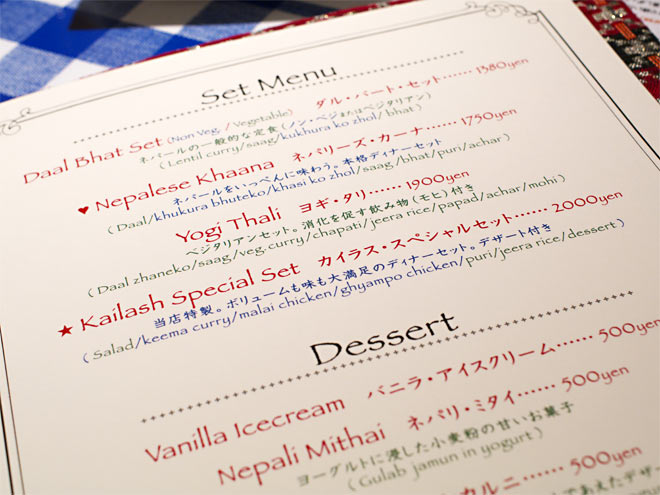 Set Menu
Daal Bhat Set (Non Veg. / Vegetable) ダル・バート・セット…… 1380yen
ネパールの一般的な定食(ノン・ベジまたはベジタリアン)
(Lentil curry/saag/kukhura ko zhol/bhat)
♥ Nepalese Khaana ネパリーズ・カーナ…… 1750yen
ネパールをいっぺんに味わう。本格ディナーセット
(Daal/khukura bhuteko/khasi ko zhol/saag/bhat/puri/achar)
Yogi Thali ヨギ・タリ…… 1900yen
ベジタリアンセット。消化を促す飲み物(モヒ)付き
(Daal zhaneko/saag/veg.curry/chapati/jeera rice/papad/achar/mohi)
★ Kailash Special Set カイラス・スペシャルセット…… 2000yen
当店特製。ボリュームも味も大満足のディナーセット。デザート付き
(Salad/keema curry/malai chicken/ghyampo chicken/puri/jeera rice/dessert)
Dessert
Vanilla Icecream バニラ・アイスクリーム…… 500yen
Nepali Mithai ネパリ・ミタイ…… 500yen
ヨーグルトに浸した小麦粉の甘いお菓子
(Gulab jamun in yogurt)
カルニ…… 500yen
あえたデザー